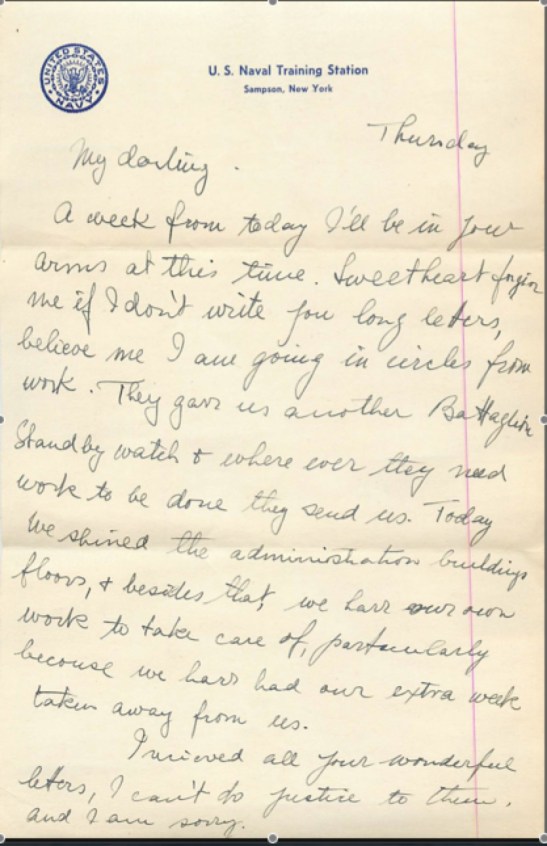 UNITED STATES NAVY
U. S. Naval Training Station
Sampson, New York
Thursday
My darling.
A week from today I'll be in your
arms at this time. Sweetheart forgive
me if I don't write you long letters,
believe me I am going in circles from
work. They gave us another Battaglion
Standby watch & where ever they need
work to be done they send us. Today
we shined the administration buildings
floors, & besides that, we have our own
work to take care of, particularly
because we have had our extra week
taken away from us.
I recieved all your wonderful
letters, I can't do justice to them.
and I am sorry.